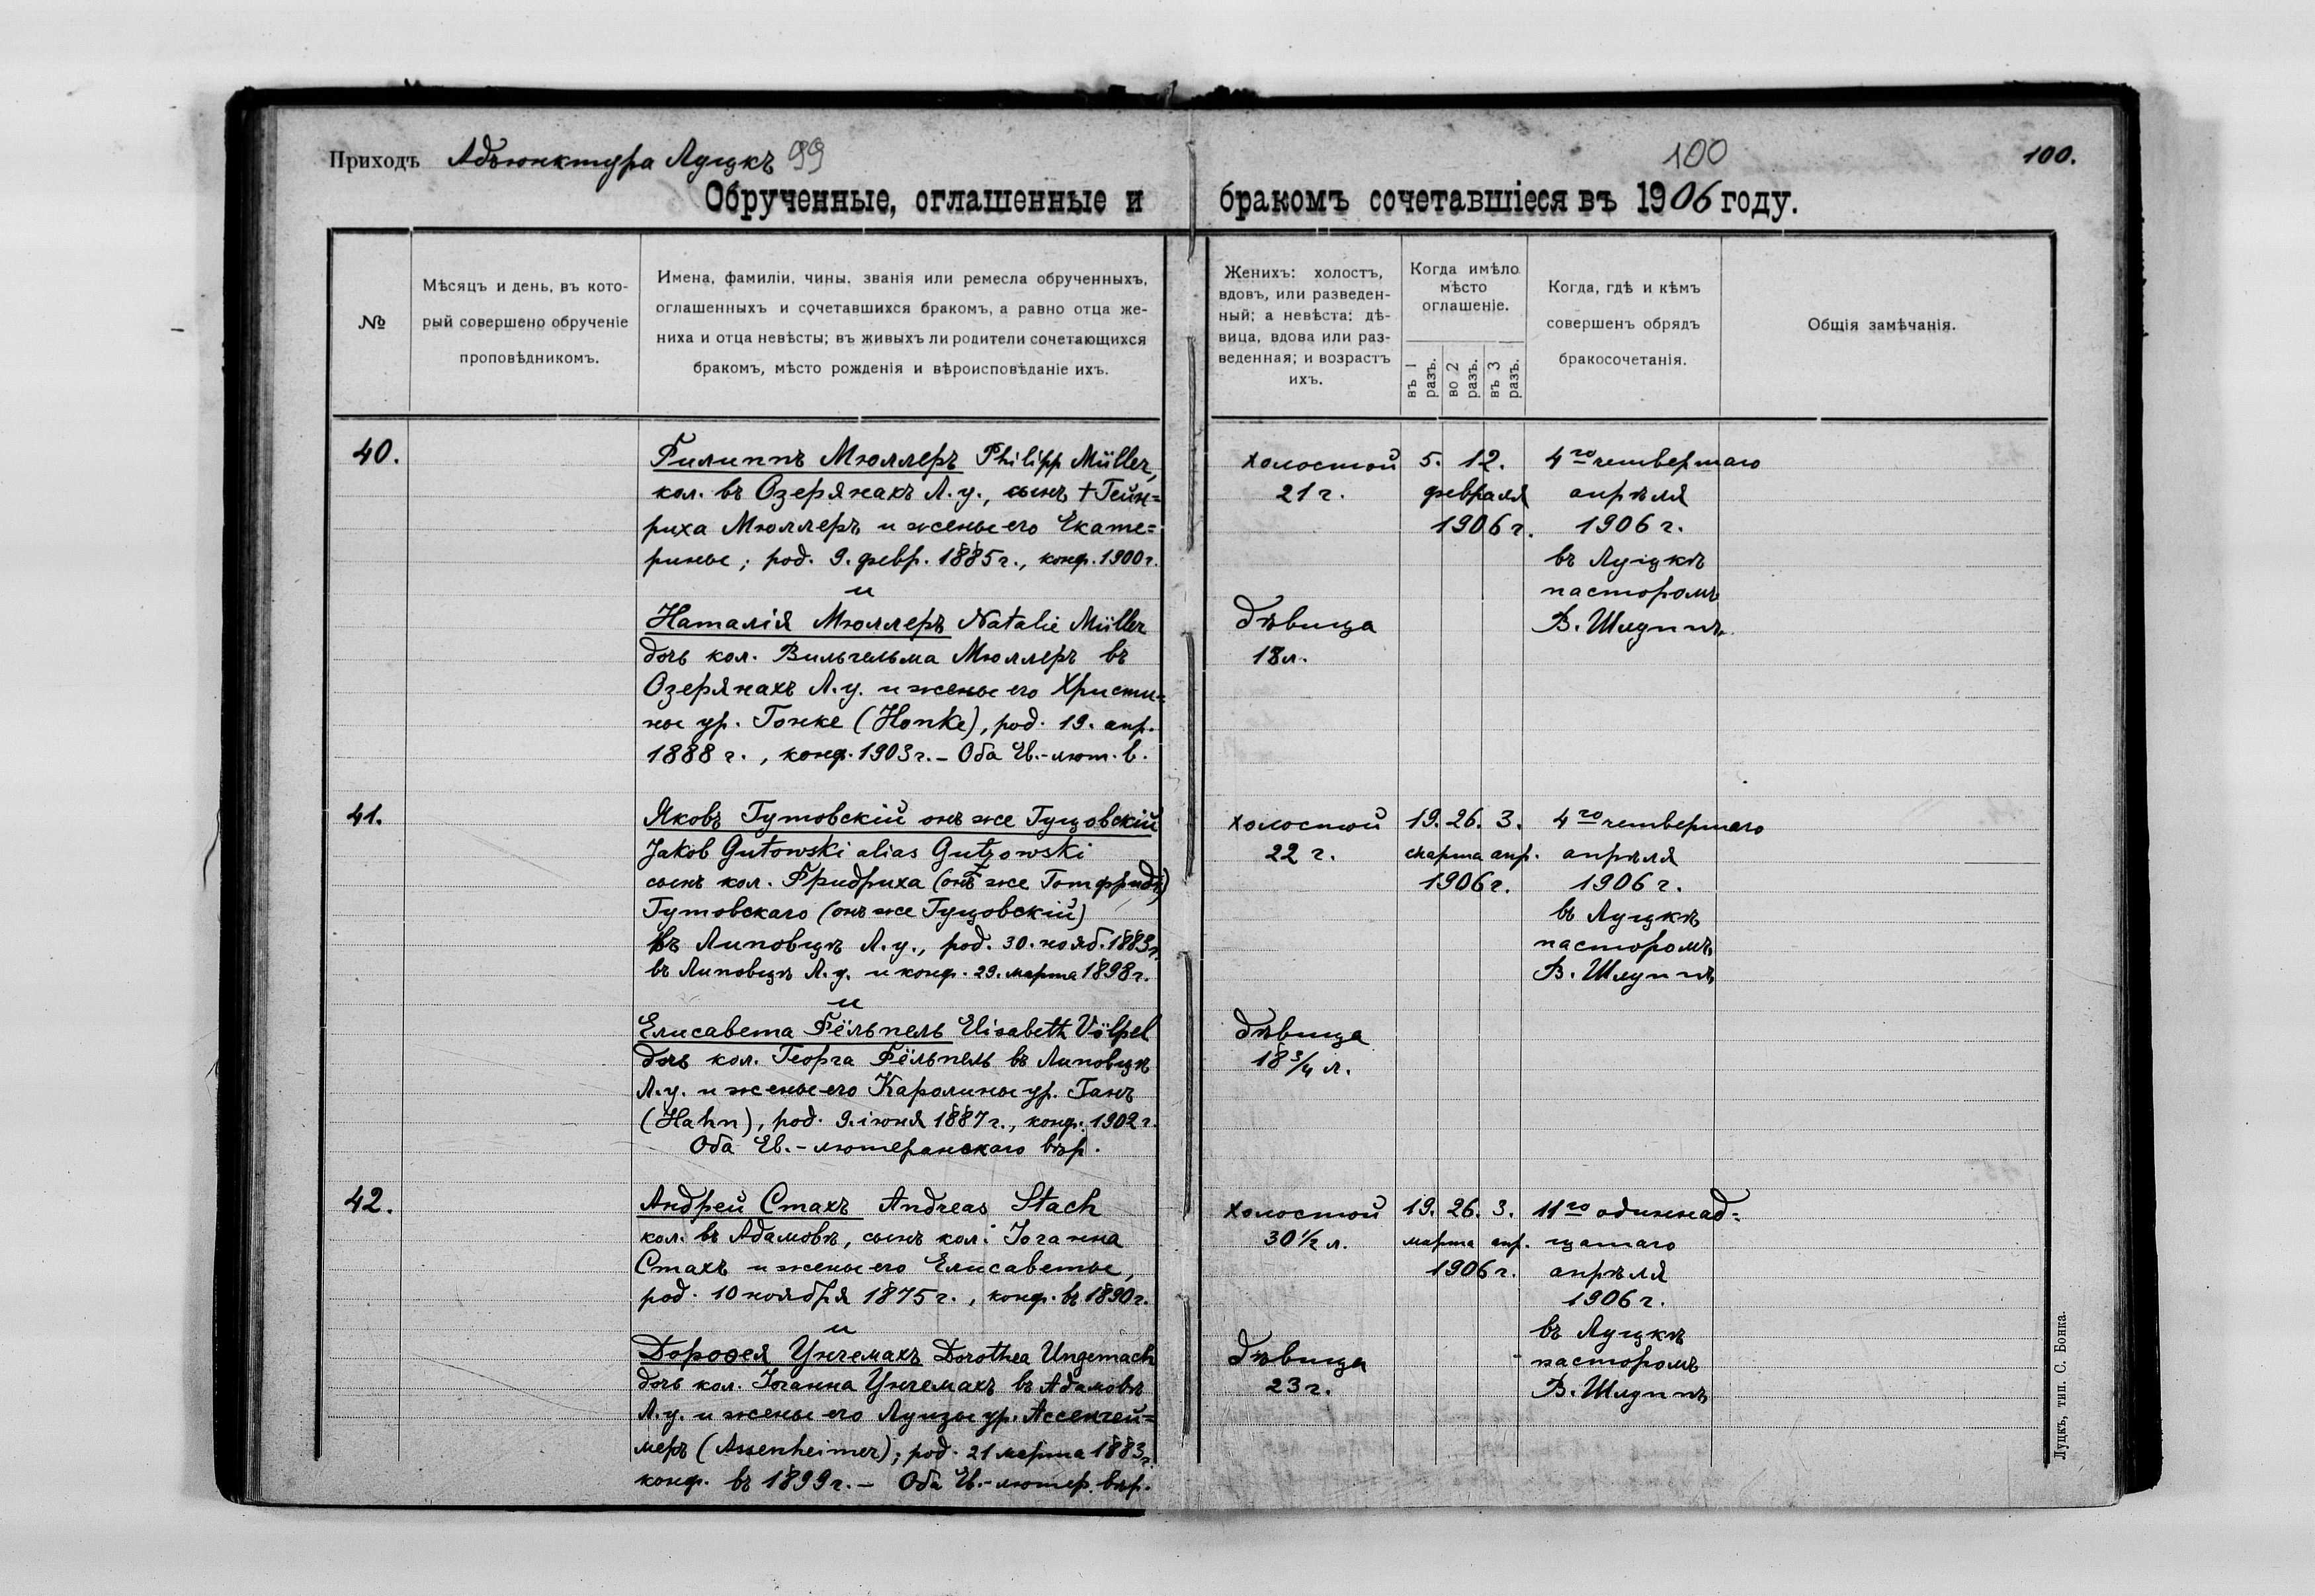 Приходъ Адъюнктура Луцкъ 99
100
100.
Обрученные, оглашенные и бракомъ сочетавшіеся въ 1906 году.
№
Мѣсяцъ и день, въ кото-
рый совершено обрученіе
проповѣдникомъ.
Имена, фамиліи, чины, званія или ремесла обрученныхъ,
оглашенныхъ и сочетавшихся бракомъ, а равно отца же-
ниха и отца невѣсты; въ живыхъ ли родители сочетающихся
бракомъ, мѣсто рожденія и вѣроисповѣданіе ихъ.
Женихъ: холостъ,
вдовъ, или разведен-
ный; а невѣста: дѣ-
вица, вдова или раз-
веденная; и возрастъ
ихъ.
Когда имѣло
мѣсто
оглашеніе.
въ 1
разъ.
во 2
разъ.
въ 3
разъ.
Когда, гдѣ и кѣмъ
совершенъ обрядъ
бракосочетанія.
Общія замѣчанія.
40.
Филиппъ Мюллеръ Philipp Müller,
кол. въ Озерянахъ Л. у., сынъ + Гейн=
риха Мюллеръ и жены его Екате=
рины; род. 9. февр. 1885 г., конф. 1900 г.
и
Наталія Мюллеръ Natalie Müller
дочь кол. Вильгельма Мюллеръ въ
Озерянахъ Л. у. и жены его Христи=
ны ур. Гонке (Honke), род. 19. апр.
1888 г., конф. 1903 г. – Оба Ев.-лют. в.
холостой
21 г.
дѣвица
18 л.
5. 12.
февраля
1906 г.
4го четвертаго
апрѣля
1906 г.
въ Луцкѣ
пасторомъ
В. Шлуппъ.
41.
Яковъ Гутовскій онъ же Гуцовскій
Jakob Gutowski alias Gutzowski
сынъ кол. Фридриха (онъ же Готфридъ)
Гутовскаго (онъ же Гуцовскій)
въ Липовцѣ Л. у., род. 30. нояб. 1883 г.
въ Липовцѣ Л. у. и конф. 29. марта 1898 г.
и
Елисавета Фёльпель Elisabeth Völpel
дочь кол. Георга Фёльпель въ Липовцѣ
Л. у. и жены его Каролины ур. Ганъ
(Hahn), род. 9. іюня 1887 г., конф. 1902 г.
Оба Ев.-лютеранскаго вѣр.
холостой
22 г.
дѣвица
18 3/4 л.
19. 26. 3.
марта апр.
1906 г.
4го четвертаго
апрѣля
1906 г.
въ Луцкѣ
пасторомъ
В. Шлуппъ
42.
Андрей Стахъ Andreas Stach
кол. въ Адамовѣ, сынъ кол. Іоганна
Стахъ и жены его Елисаветы,
род. 10 ноября 1875 г., конф. въ 1890 г.
и
Доровея Унгемахъ Dorothea Ungemach
дочь кол. Іоганна Унгемахъ въ Адамовѣ
Л. у. и жены его Луизы ур. Ассенгей=
меръ (Assenheimer); род. 21 марта 1883 г.
конф. въ 1899 г. – Оба Ев.-лютер. вѣр.
холостой
30 1/2 л.
дѣвица
23 г.
19. 26. 3.
марта апр.
1906 г.
11го одиннад=
цатаго
апрѣля
1906 г.
въ Луцкѣ
пасторомъ
В. Шлуппъ
Луцкъ, тип. С. Бонка.